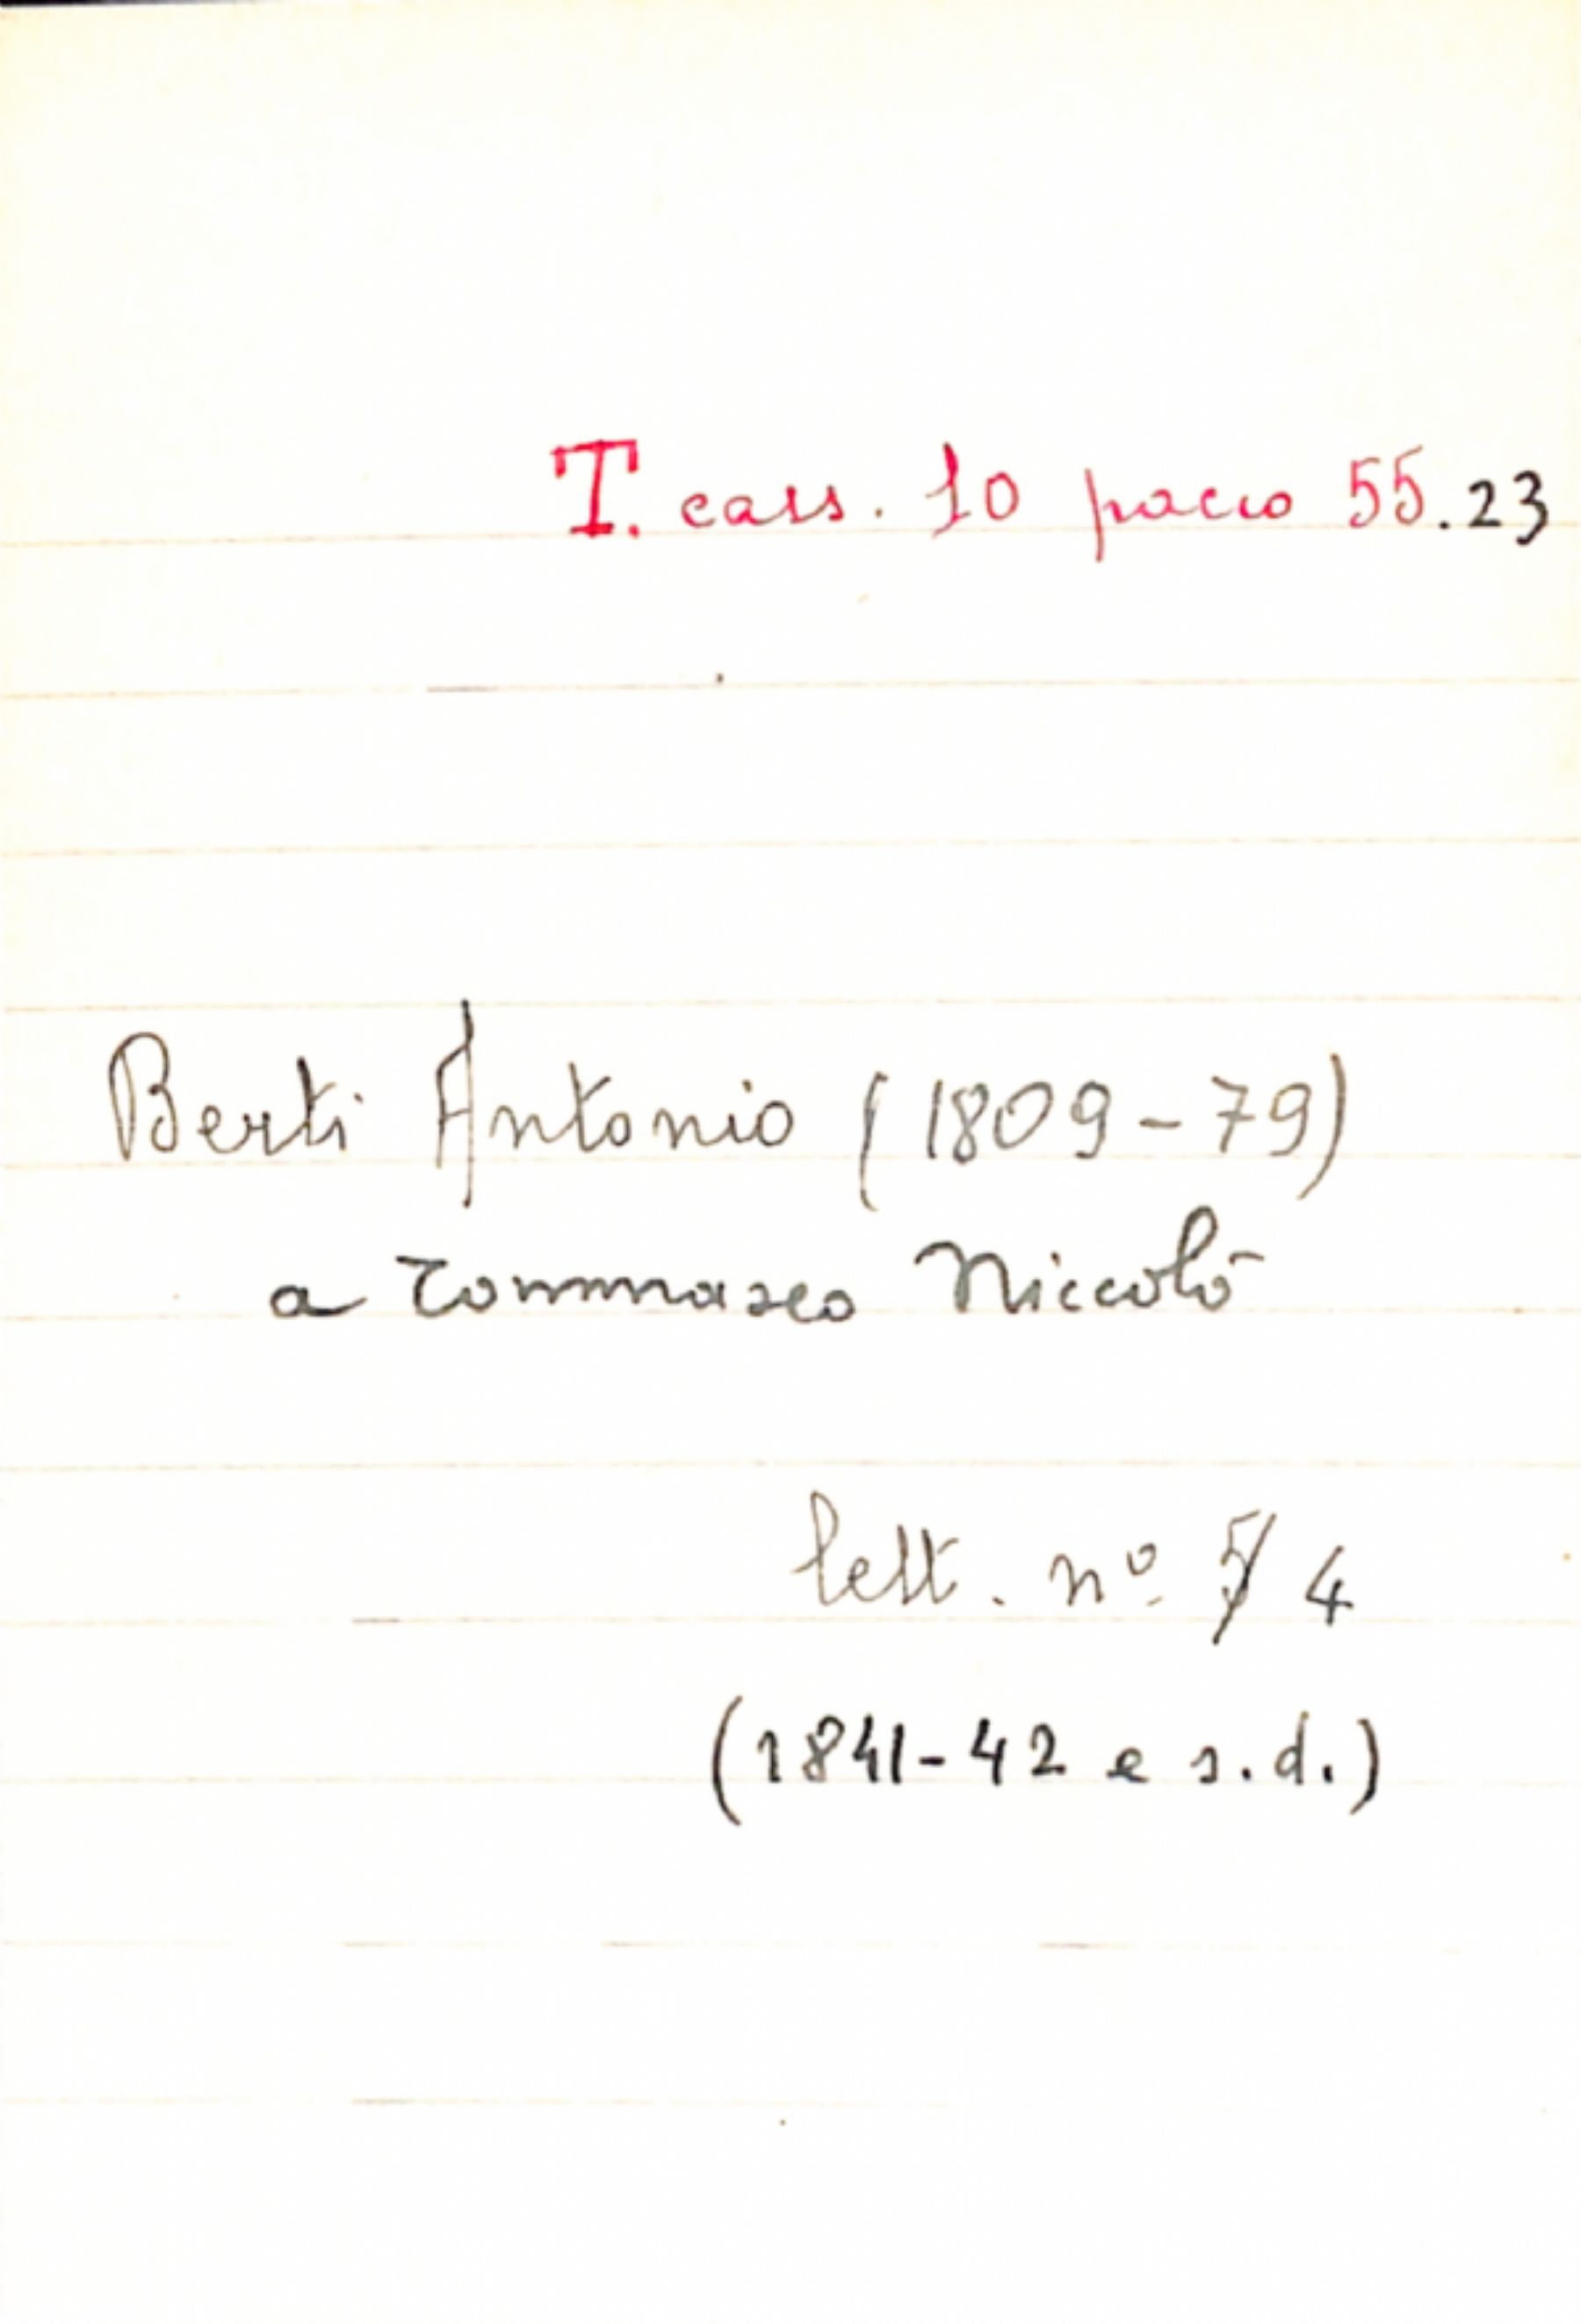 T. cass. 10 pacco 55.23
Berti Antonio (1809-79)
a Tommaseo Niccolò
lett. nº 5 4
(1841-42 e s.d.)